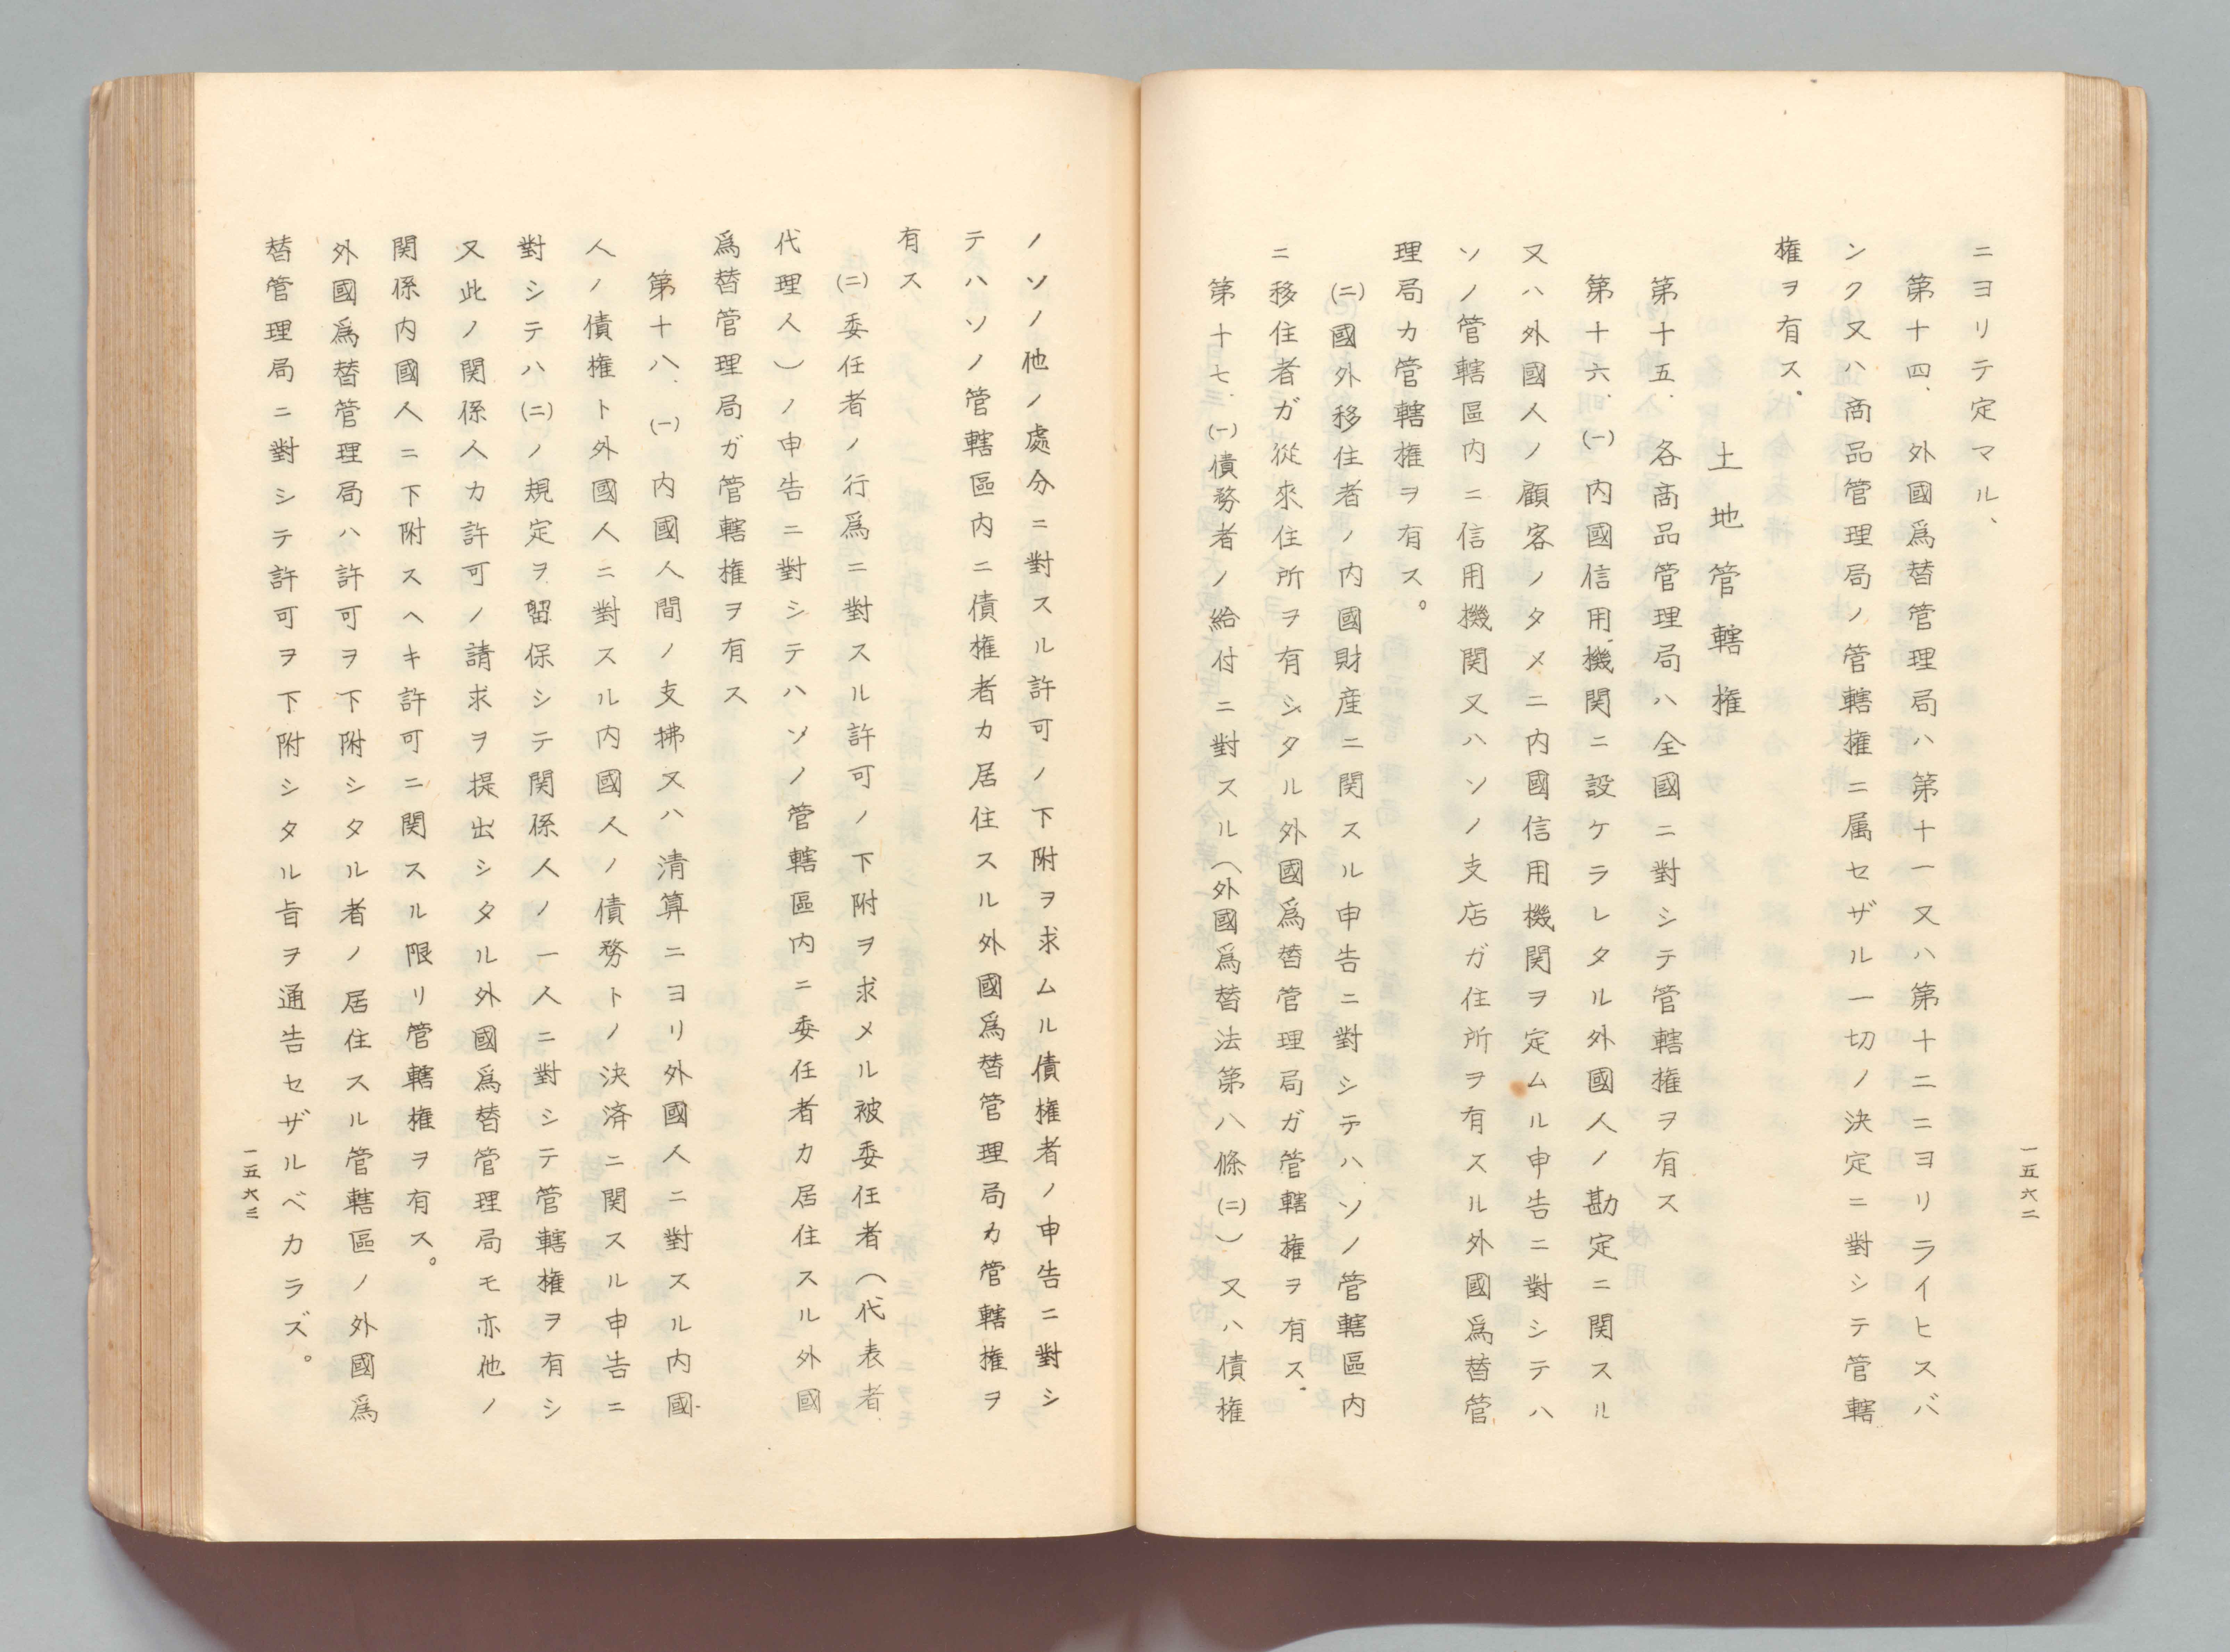 ニヨリテ定マル、
第十四、外國爲替管理局ハ第十一又ハ第十二ニヨリライヒスバ
ンク又ハ商品管理局ノ管轄権ニ属セザル一切ノ決定ニ對シテ管轄
権ヲ有ス.
土地管轄権
第十五.各商品管理局ハ全國ニ對シテ管轄権ヲ有ス
第十六.(一)内國信用機関ニ設ケラレタル外國人ノ勘定ニ関スル
又ハ外國人ノ顧客ノタメニ内國信用機関ヲ定ムル申告ニ對シテハ
ソノ管轄區内ニ信用機関又ハソノ支店ガ住所ヲ有スル外國爲替管
理局カ管轄権ヲ有ス。
(二)國外移住者ノ内國財産ニ関スル申告ニ對シテハソノ管轄區内
ニ移住者ガ從來住所ヲ有シタル外國爲替管理局ガ管轄権ヲ有ス.
第十七.(一)債務者ノ給付ニ對スル(外國爲替法第八條(二))又ハ債権
一五六二
ノソノ他ノ處分ニ對スル許可ノ下附ヲ求ムル債権者ノ申告ニ對シ
テハソノ管轄區内ニ債権者カ居住スル外國爲替管理局カ管轄権ヲ
有ス
(二)委任者ノ行爲ニ對スル許可ノ下附ヲ求メル被委任者(代表者
代理人)ノ申告ニ對シテハソノ管轄區内ニ委任者カ居住スル外國
爲替管理局ガ管轄権ヲ有ス
第十八.(一)内國人間ノ支拂又ハ清算ニヨリ外國人ニ對スル内國
人ノ債権ト外國人ニ對スル内國人ノ債務トノ決済ニ関スル申告ニ
對シテハ(二)ノ規定ヲ留保シテ関係人ノ一人ニ對シテ管轄権ヲ有シ
又此ノ関係人カ許可ノ請求ヲ提出シタル外國爲替管理局モ亦他ノ
関係内國人ニ下附スヘキ許可ニ関スル限リ管轄権ヲ有ス。
外國爲替管理局ハ許可ヲ下附シタル者ノ居住スル管轄區ノ外國爲
替管理局ニ對シテ許可ヲ下附シタル旨ヲ通告セザルベカラズ。
一五六三